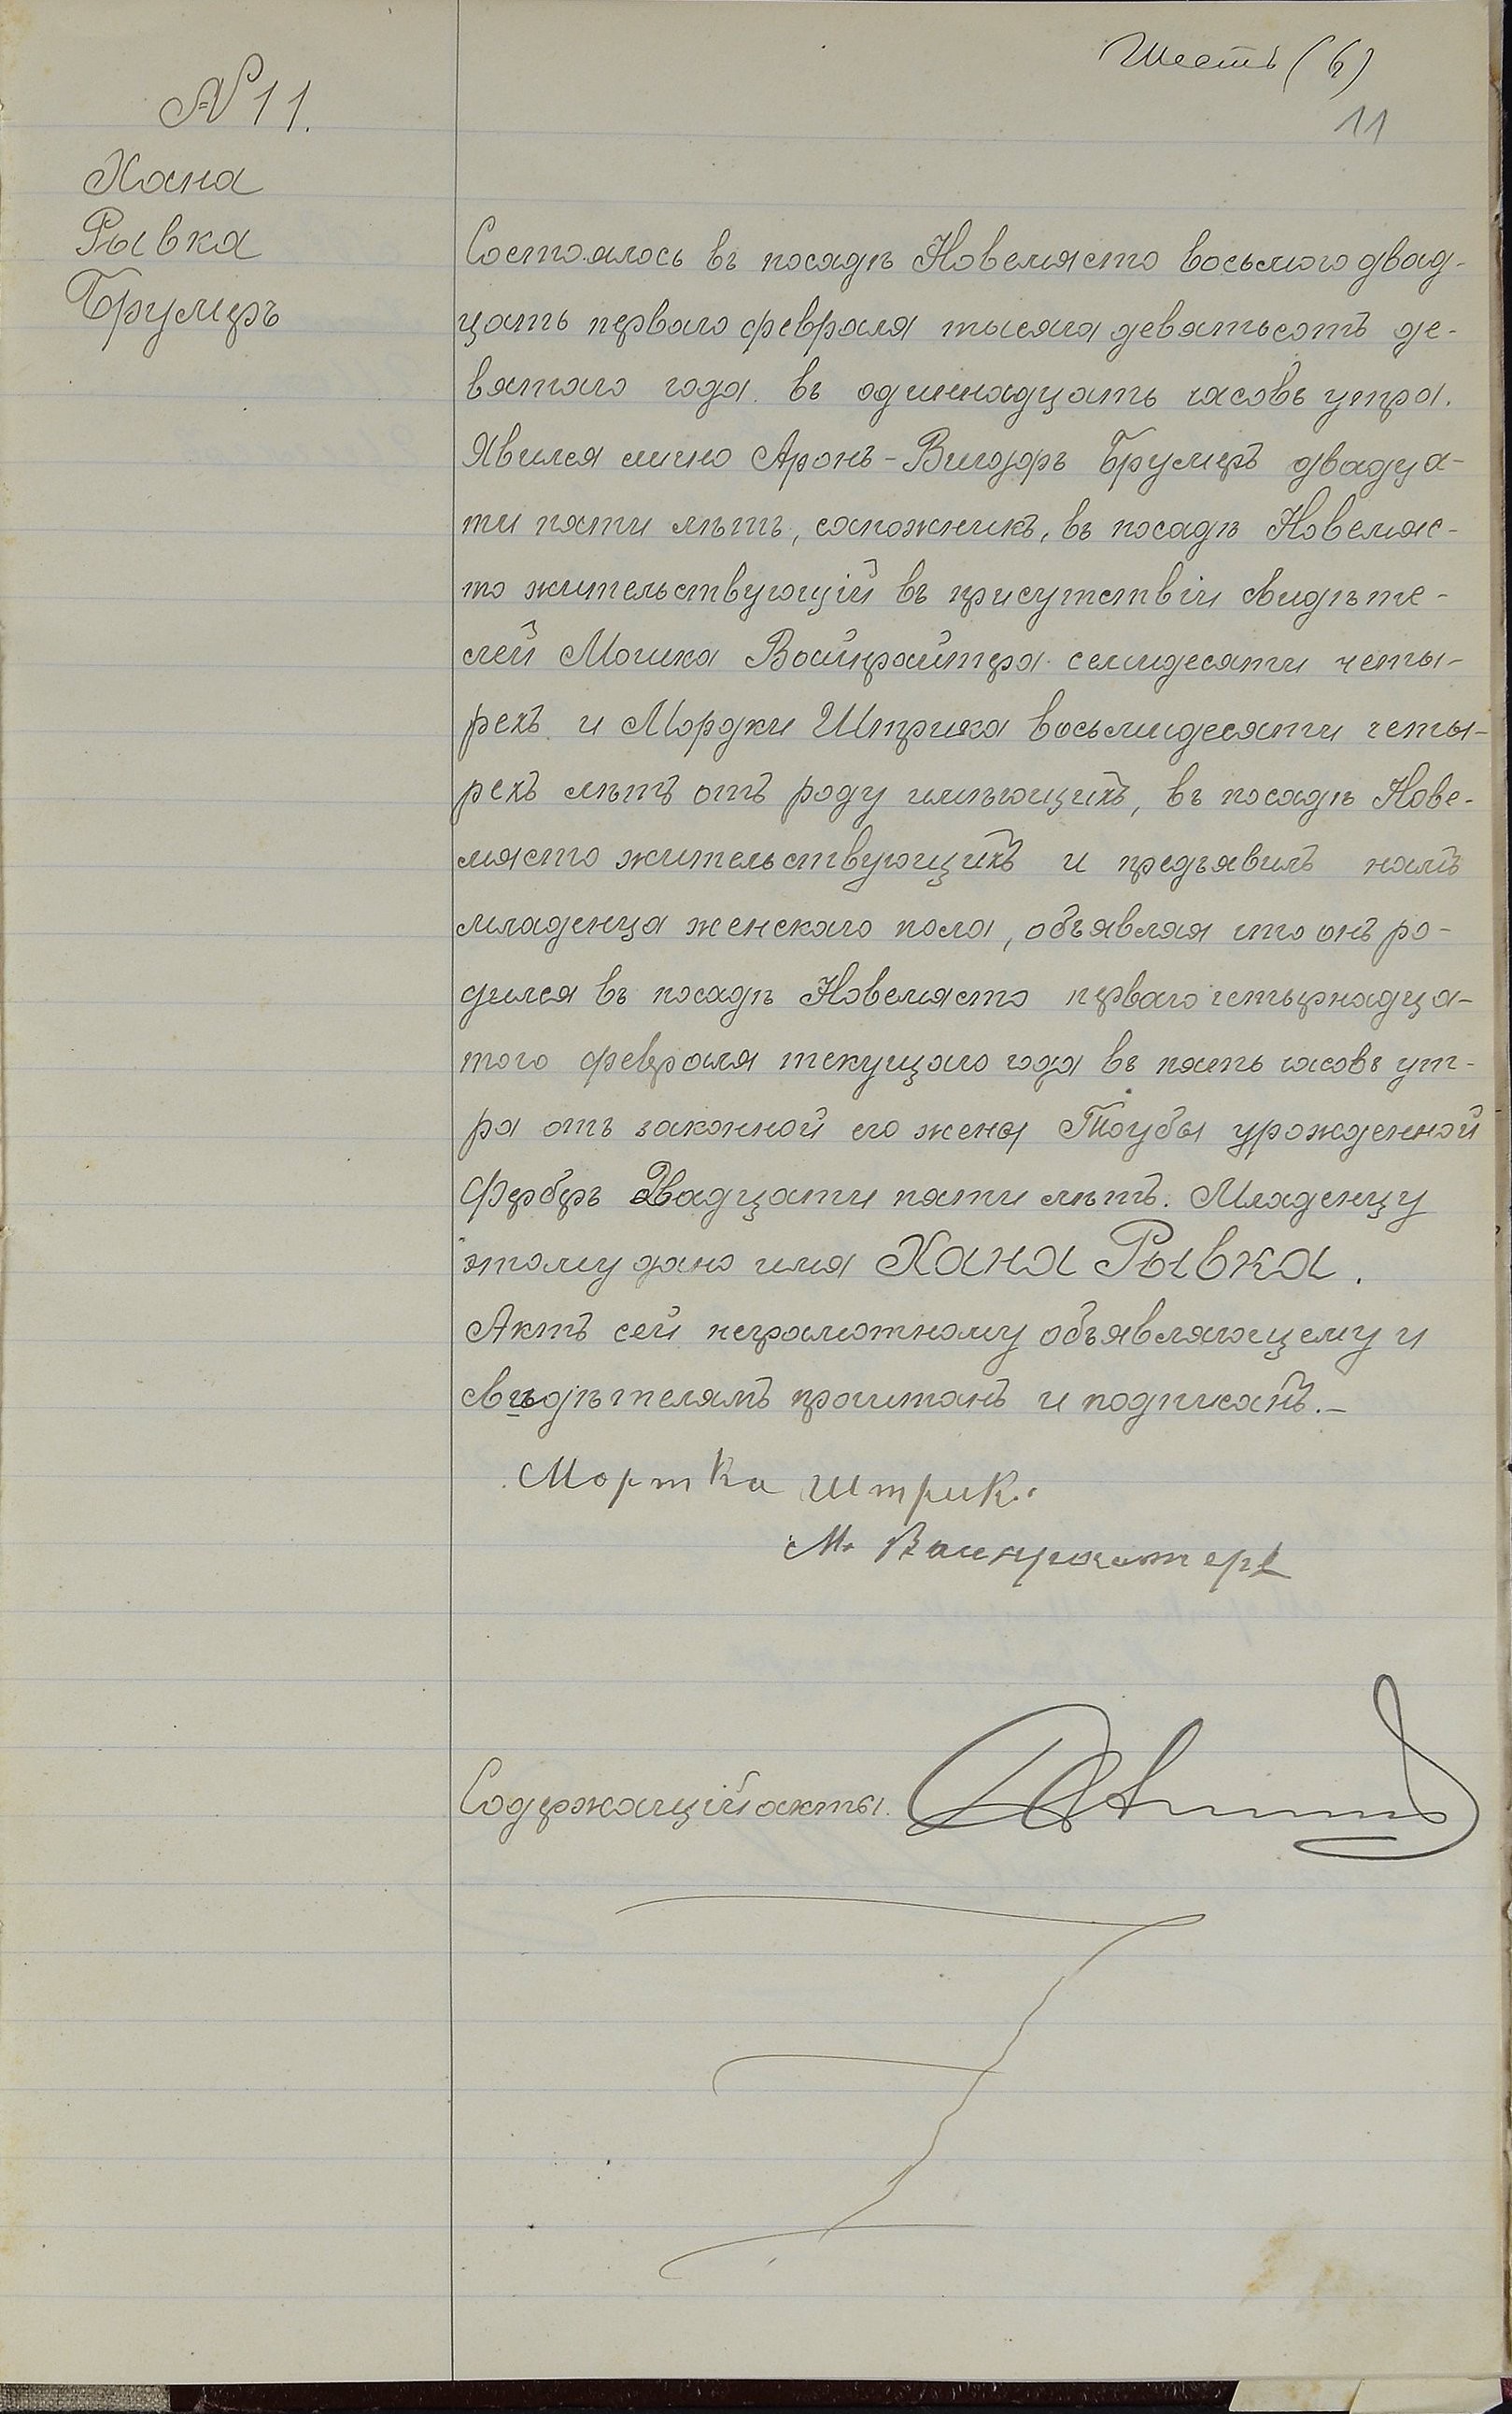 Шесть (6)
11
№ 11.
Хана
Рывка
Брумеръ
Состоялось въ посадѣ Новемясто восьмого двад-
цать перваго февраля тысяча девятьсотъ де-
вятаго года въ одиннадцать часовъ утра.
Явился лично Аронъ-Вигдоръ Брумеръ двадца-
ти пяти лѣтъ, сапожникъ, въ посадѣ Новемяс-
то жительствующій въ присутствіи свидѣте-
лей Мошка Вайнрайтера семидесяти четы-
рехъ и Мордки Штрика восьмидесяти четы-
рехъ лѣтъ отъ роду имѣющихъ, въ посадѣ Нове-
място жительствующихъ и предъявилъ намъ
младенца женскаго пола, объявляя что онъ ро-
дился въ посадѣ Новемясто перваго четырнадца-
того февраля текущаго года въ пять часовъ ут-
ра отъ законной его жены Таубы урожденной
Ферберъ двадцати пяти лѣтъ. Младенцу
этому дано имя Хана Рывка.
Актъ сей неграмотному объявляющему и
свидѣтелямъ прочитанъ и подписанъ.-
Мортка Штрик.
М. Ваинраитеръ
Содержащій акты.